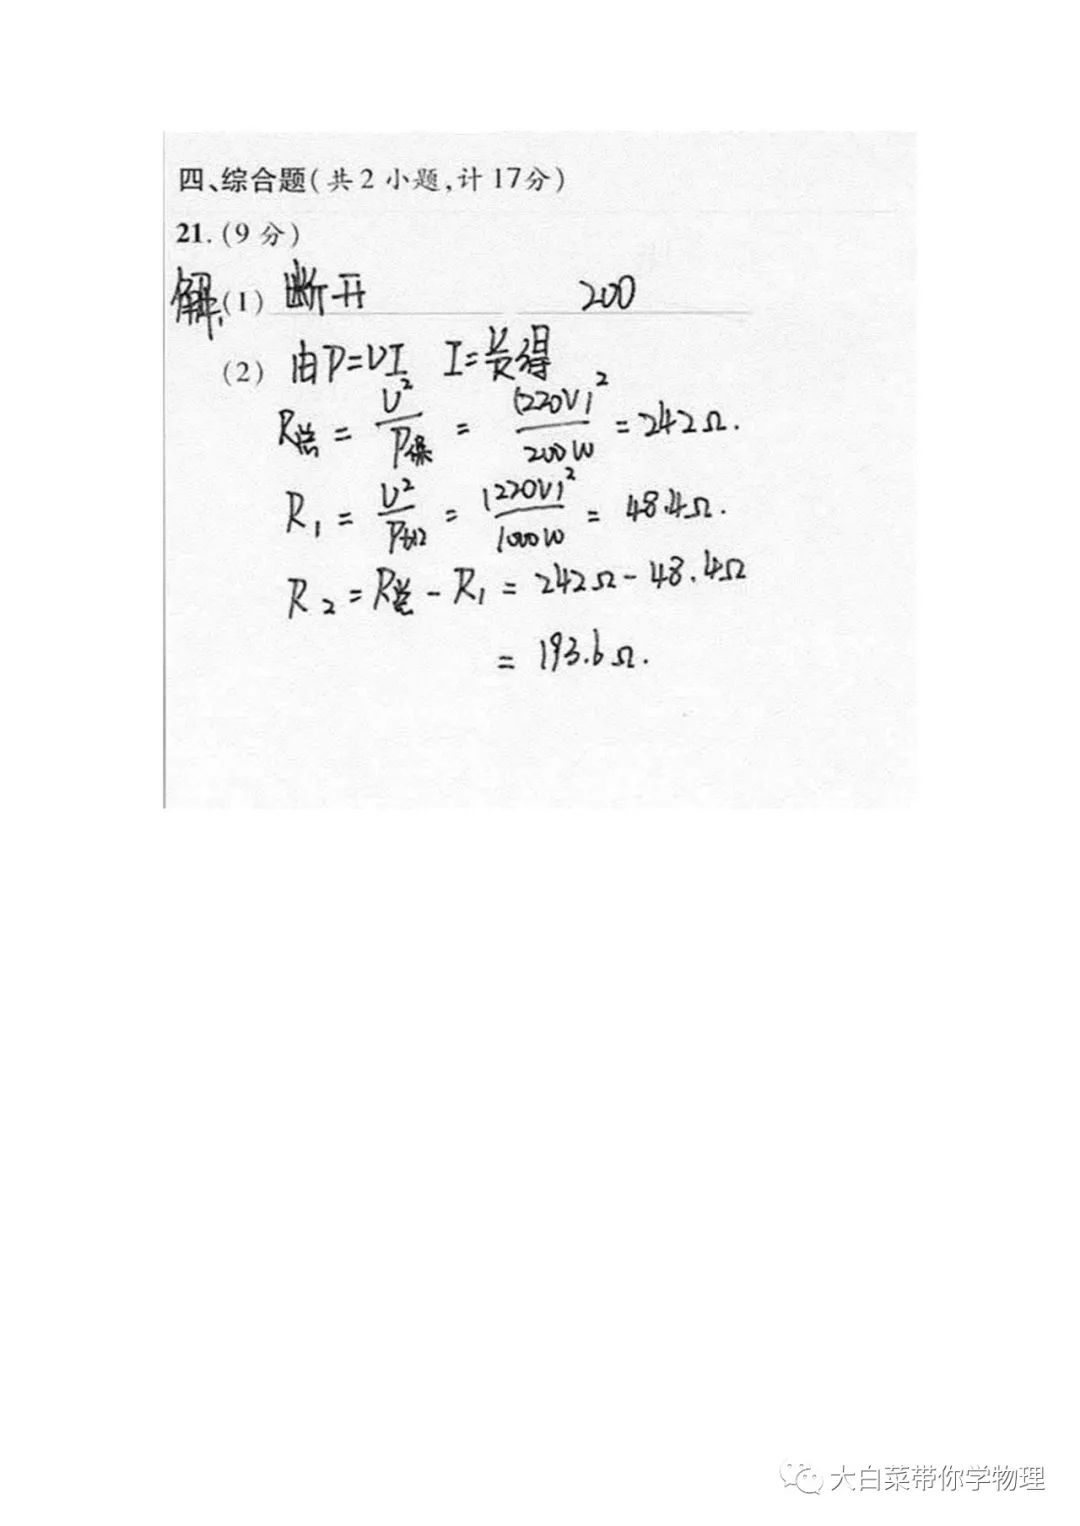 四、综合题(共2小题,计17分)
21.(9分)
解:(1) 断开 200
(2) 由P=UI I=U/R得
R总 = U²/P保 = (220V)²/200W = 242Ω.
R₁ = U²/P加 = (220V)²/1000W = 48.4Ω.
R₂ = R总 - R₁ = 242Ω - 48.4Ω
= 193.6Ω.
大白菜带你学物理